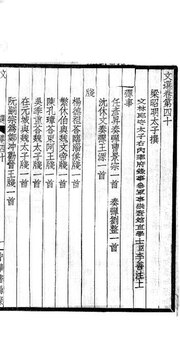 文選卷第四十
梁昭明太子撰
文林郎守太子右內率府錄事參軍事崇賢館直學士臣李善注上
彈事
任彥昇奏彈曹景宗一首　奏彈劉整一首
沈休文奏彈王源一首
牋
楊德祖荅臨淄侯牋一首
繁休伯與魏文帝牋一首
陳孔璋荅東阿王牋一首
吳季重荅魏太子牋一首
在元城與魏太子牋一首
阮嗣宗爲鄭沖勸晉王牋一首